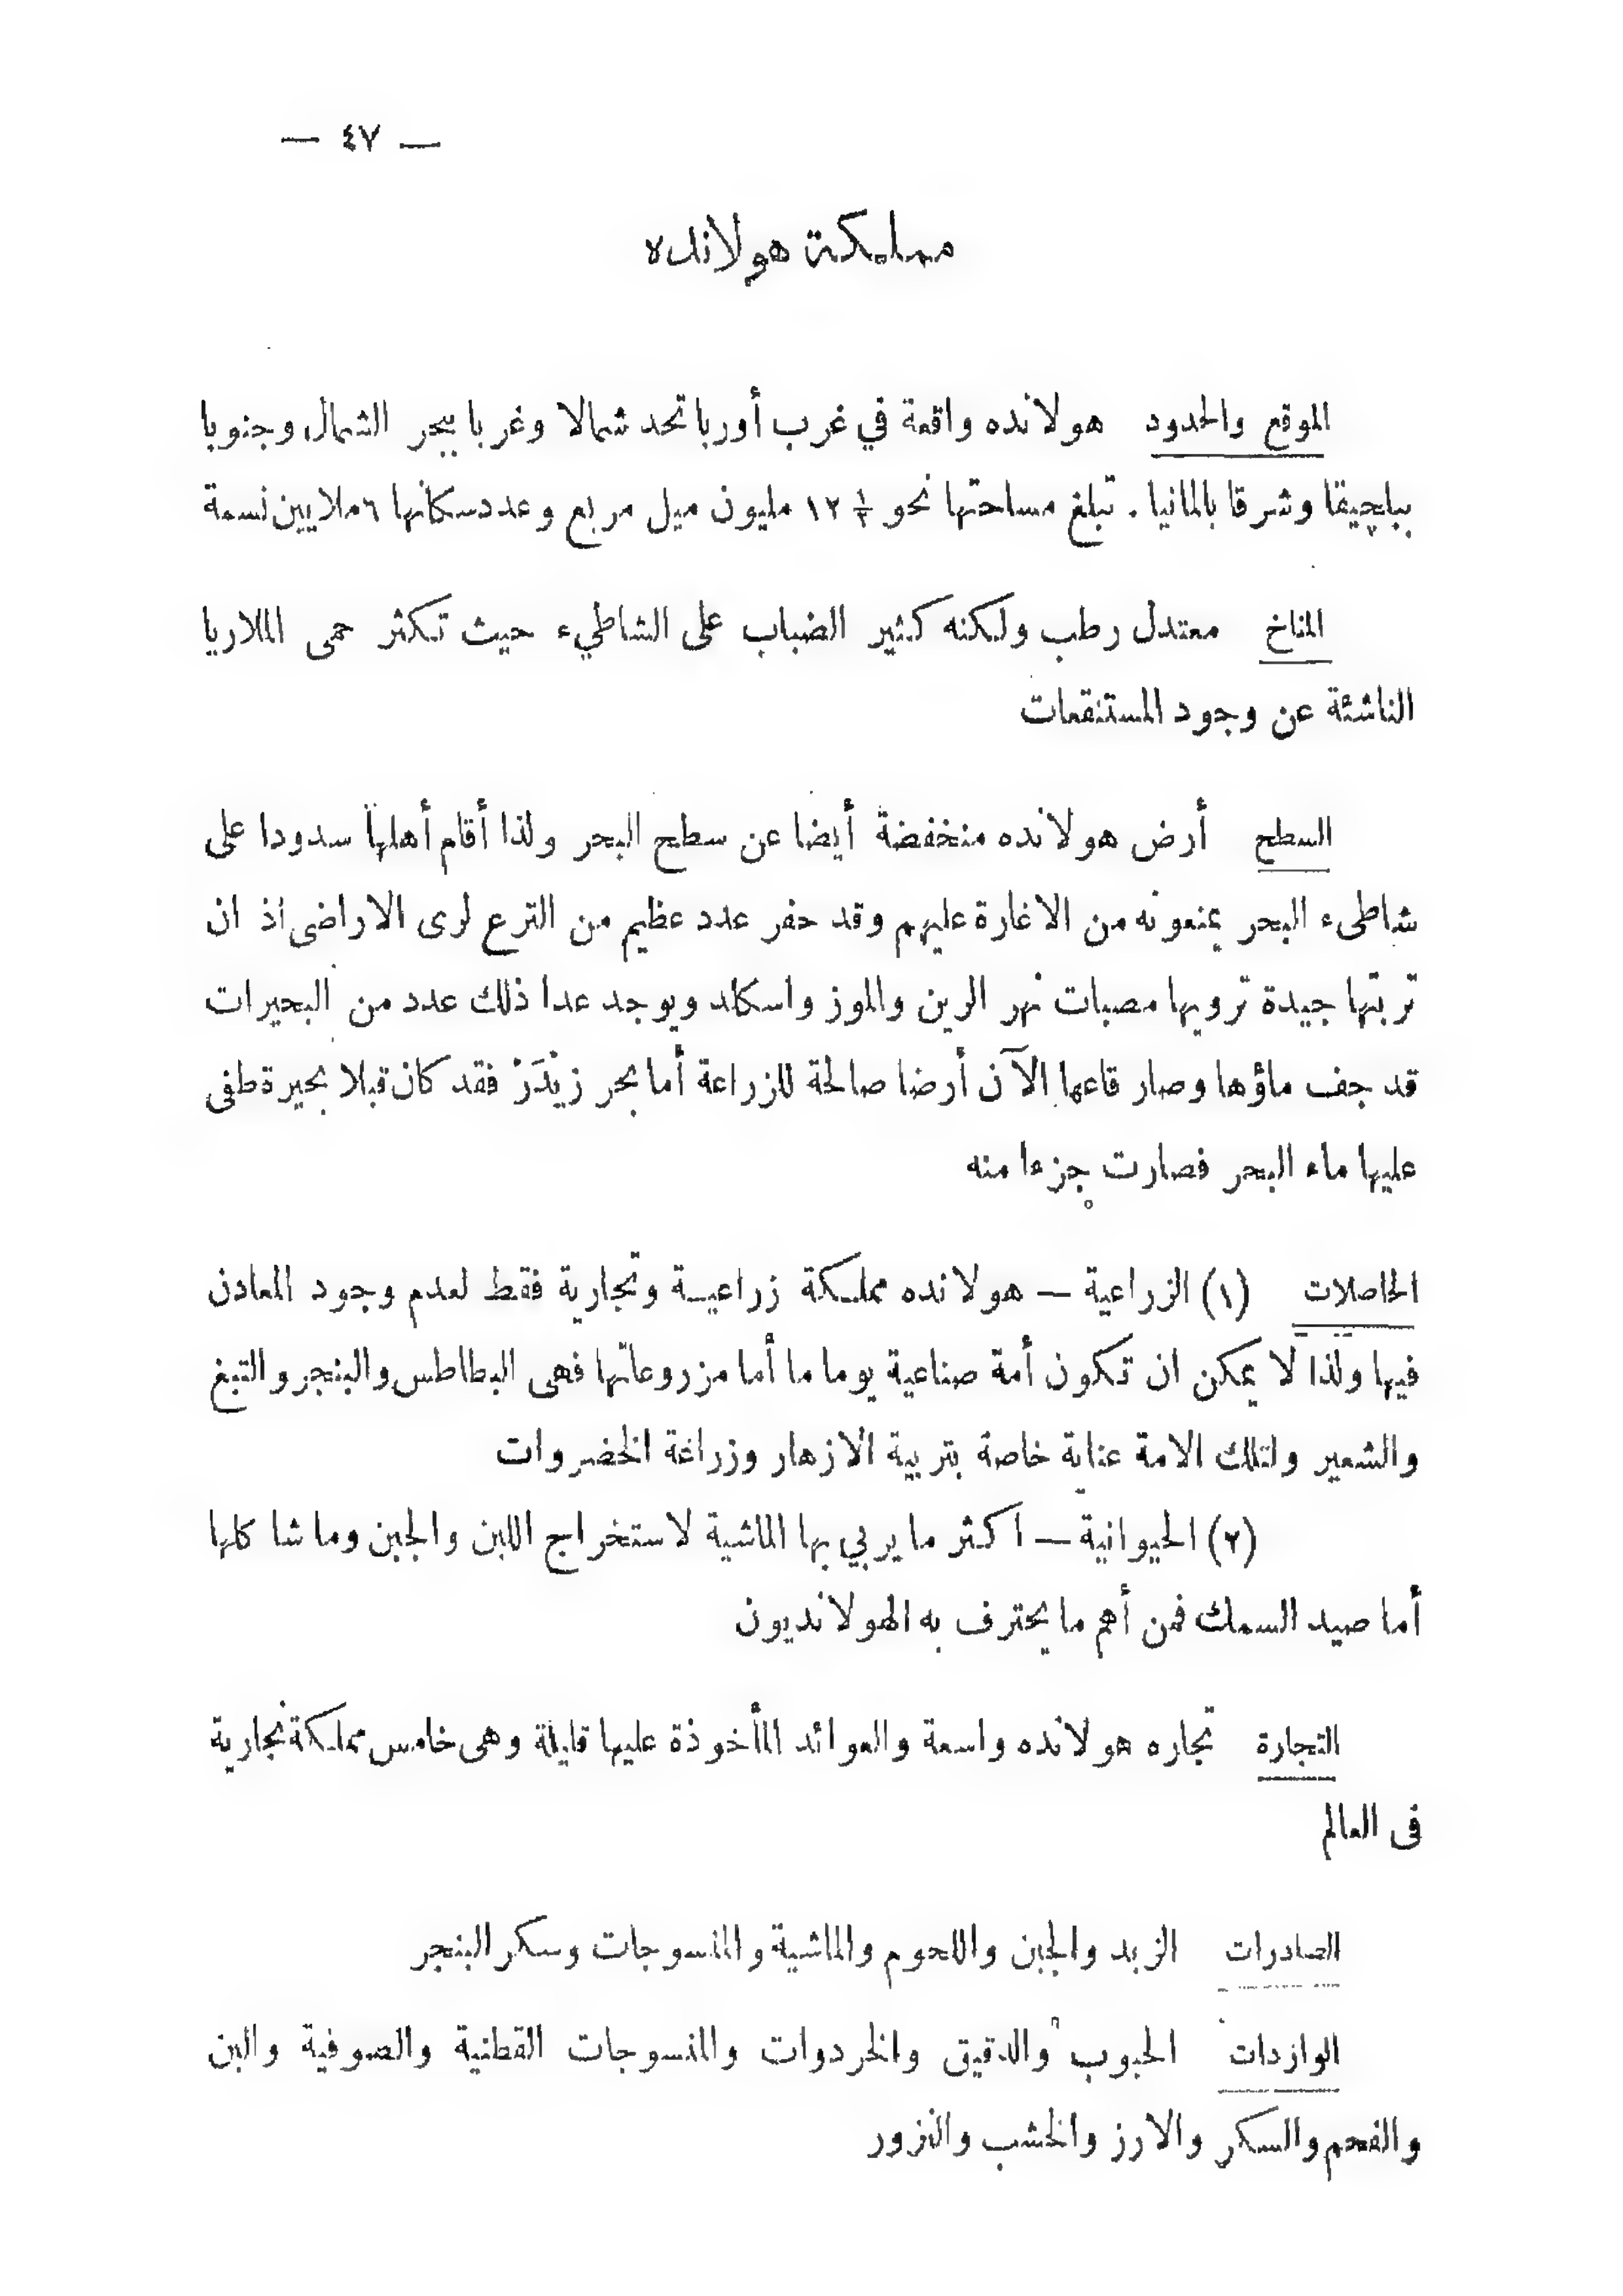 — ٤٧ —
مملكة هولانده
الموقع والحدود هولانده واقعة في غرب أوربا تحد شمالا وغربا ببحر الشمال وجنوبا
ببلچيقا وشرقا بالمانيا . تبلغ مساحتها نحو ١٢ ١/٢ مليون ميل مربع وعدد سكانها ٦ ملايين نسمة
المناخ معتدل رطب ولكنه كثير الضباب على الشاطيء حيث تكثر حمى الملاريا
الناشئة عن وجود المستنقعات
السطح أرض هولانده منخفضة أيضا عن سطح البحر ولذا أقام أهلها سدودا على
شاطىء البحر يمنعونه من الاغارة عليهم وقد حفر عدد عظيم من الترع لرى الاراضى اذ ان
تربتها جيدة ترويها مصبات نهر الرين والموز واسكلد ويوجد عدا ذلك عدد من البحيرات
قد جف ماؤها وصار قاعها الآن أرضا صالحة للزراعة أما بحر زيْدَرْ فقد كان قبلا بحيرة طفى
عليها ماء البحر فصارت جزءا منه
الحاصلات (١) الزراعية — هولانده مملكة زراعية وتجارية فقط لعدم وجود المعادن
فيها ولذا لا يمكن ان تكون أمة صناعية يوما ما أما مزروعاتها فهى البطاطس والبنجر والتبغ
والشعير ولتلك الامة عناية خاصة بتربية الازهار وزراعة الخضروات
(٢) الحيوانية — اكثر ما يربي بها الماشية لاستخراج اللبن والجبن وما شا كلها
أما صيد السمك فمن أهم ما يحترف به الهولانديون
التجارة تجاره هولانده واسعة والعوائد المأخوذة عليها قليلة وهى خامس مملكة تجارية
فى العالم
الصادرات الزبد والجبن واللحوم والماشية والمنسوجات وسكر البنجر
الواردات الحبوب والدقيق والخردوات والمنسوجات القطنية والصوفية والبن
والفحم والسكر والارز والخشب والبزور